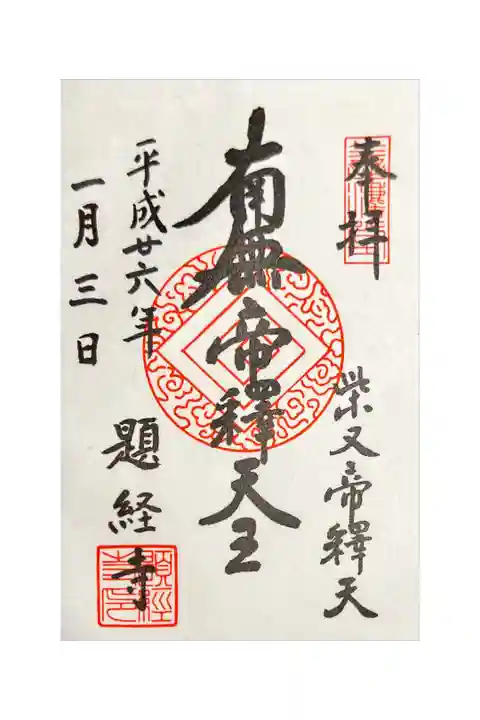 奉拝
柴又帝釋天
南無帝釋天王
平成廿六年
一月三日
題経寺
題經寺印